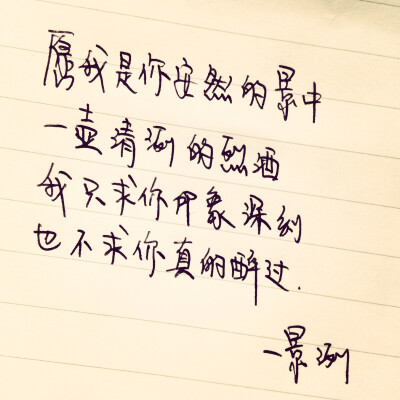 愿我是你安然的景中
一壶清冽的烈酒
我只求你印象深刻
也不求你真的醉过.
一景冽